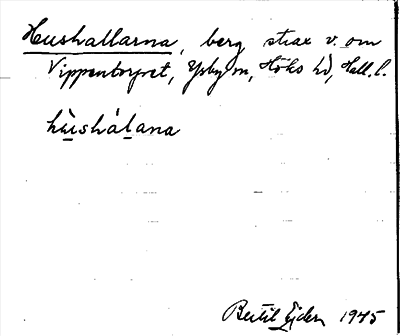 Hushallarna, berg strax v. om
Vippentorpet, Ysby sn, Höks hd, Hall. l.
hùshálana
Bertil Ejder 1945